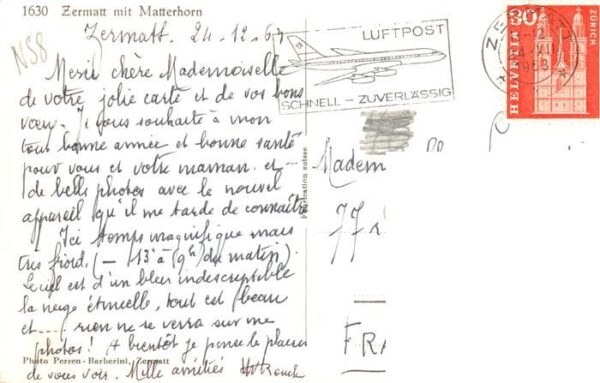 1630 Zermatt mit Matterhorn
N58
Zermatt. 24-12-6
Merci chère Mademoiselle
de votre jolie carte et de vos bons
vœux. Je vous souhaite à mon
tour bonne année et bonne santé
pour vous et votre maman. et -
de belles photos avec le nouvel
appareil qu'il me tarde de connaître
Ici temps magnifique mais
très froid. (- 13° à 9h du matin).
Le ciel est d'un bleu indescriptible
la neige étincelle, tout est beau
et.... rien ne se verra sur mes
photos! A bientôt je pense le plaisir
de vous voir. Mille amitiés
Photo Perren-Barberini, Zermatt
Fabrication suisse
LUFTPOST
SCHNELL - ZUVERLÄSSIG
ZERMATT
HELVETIA
30
ZÜRICH
Madem
77
FRA